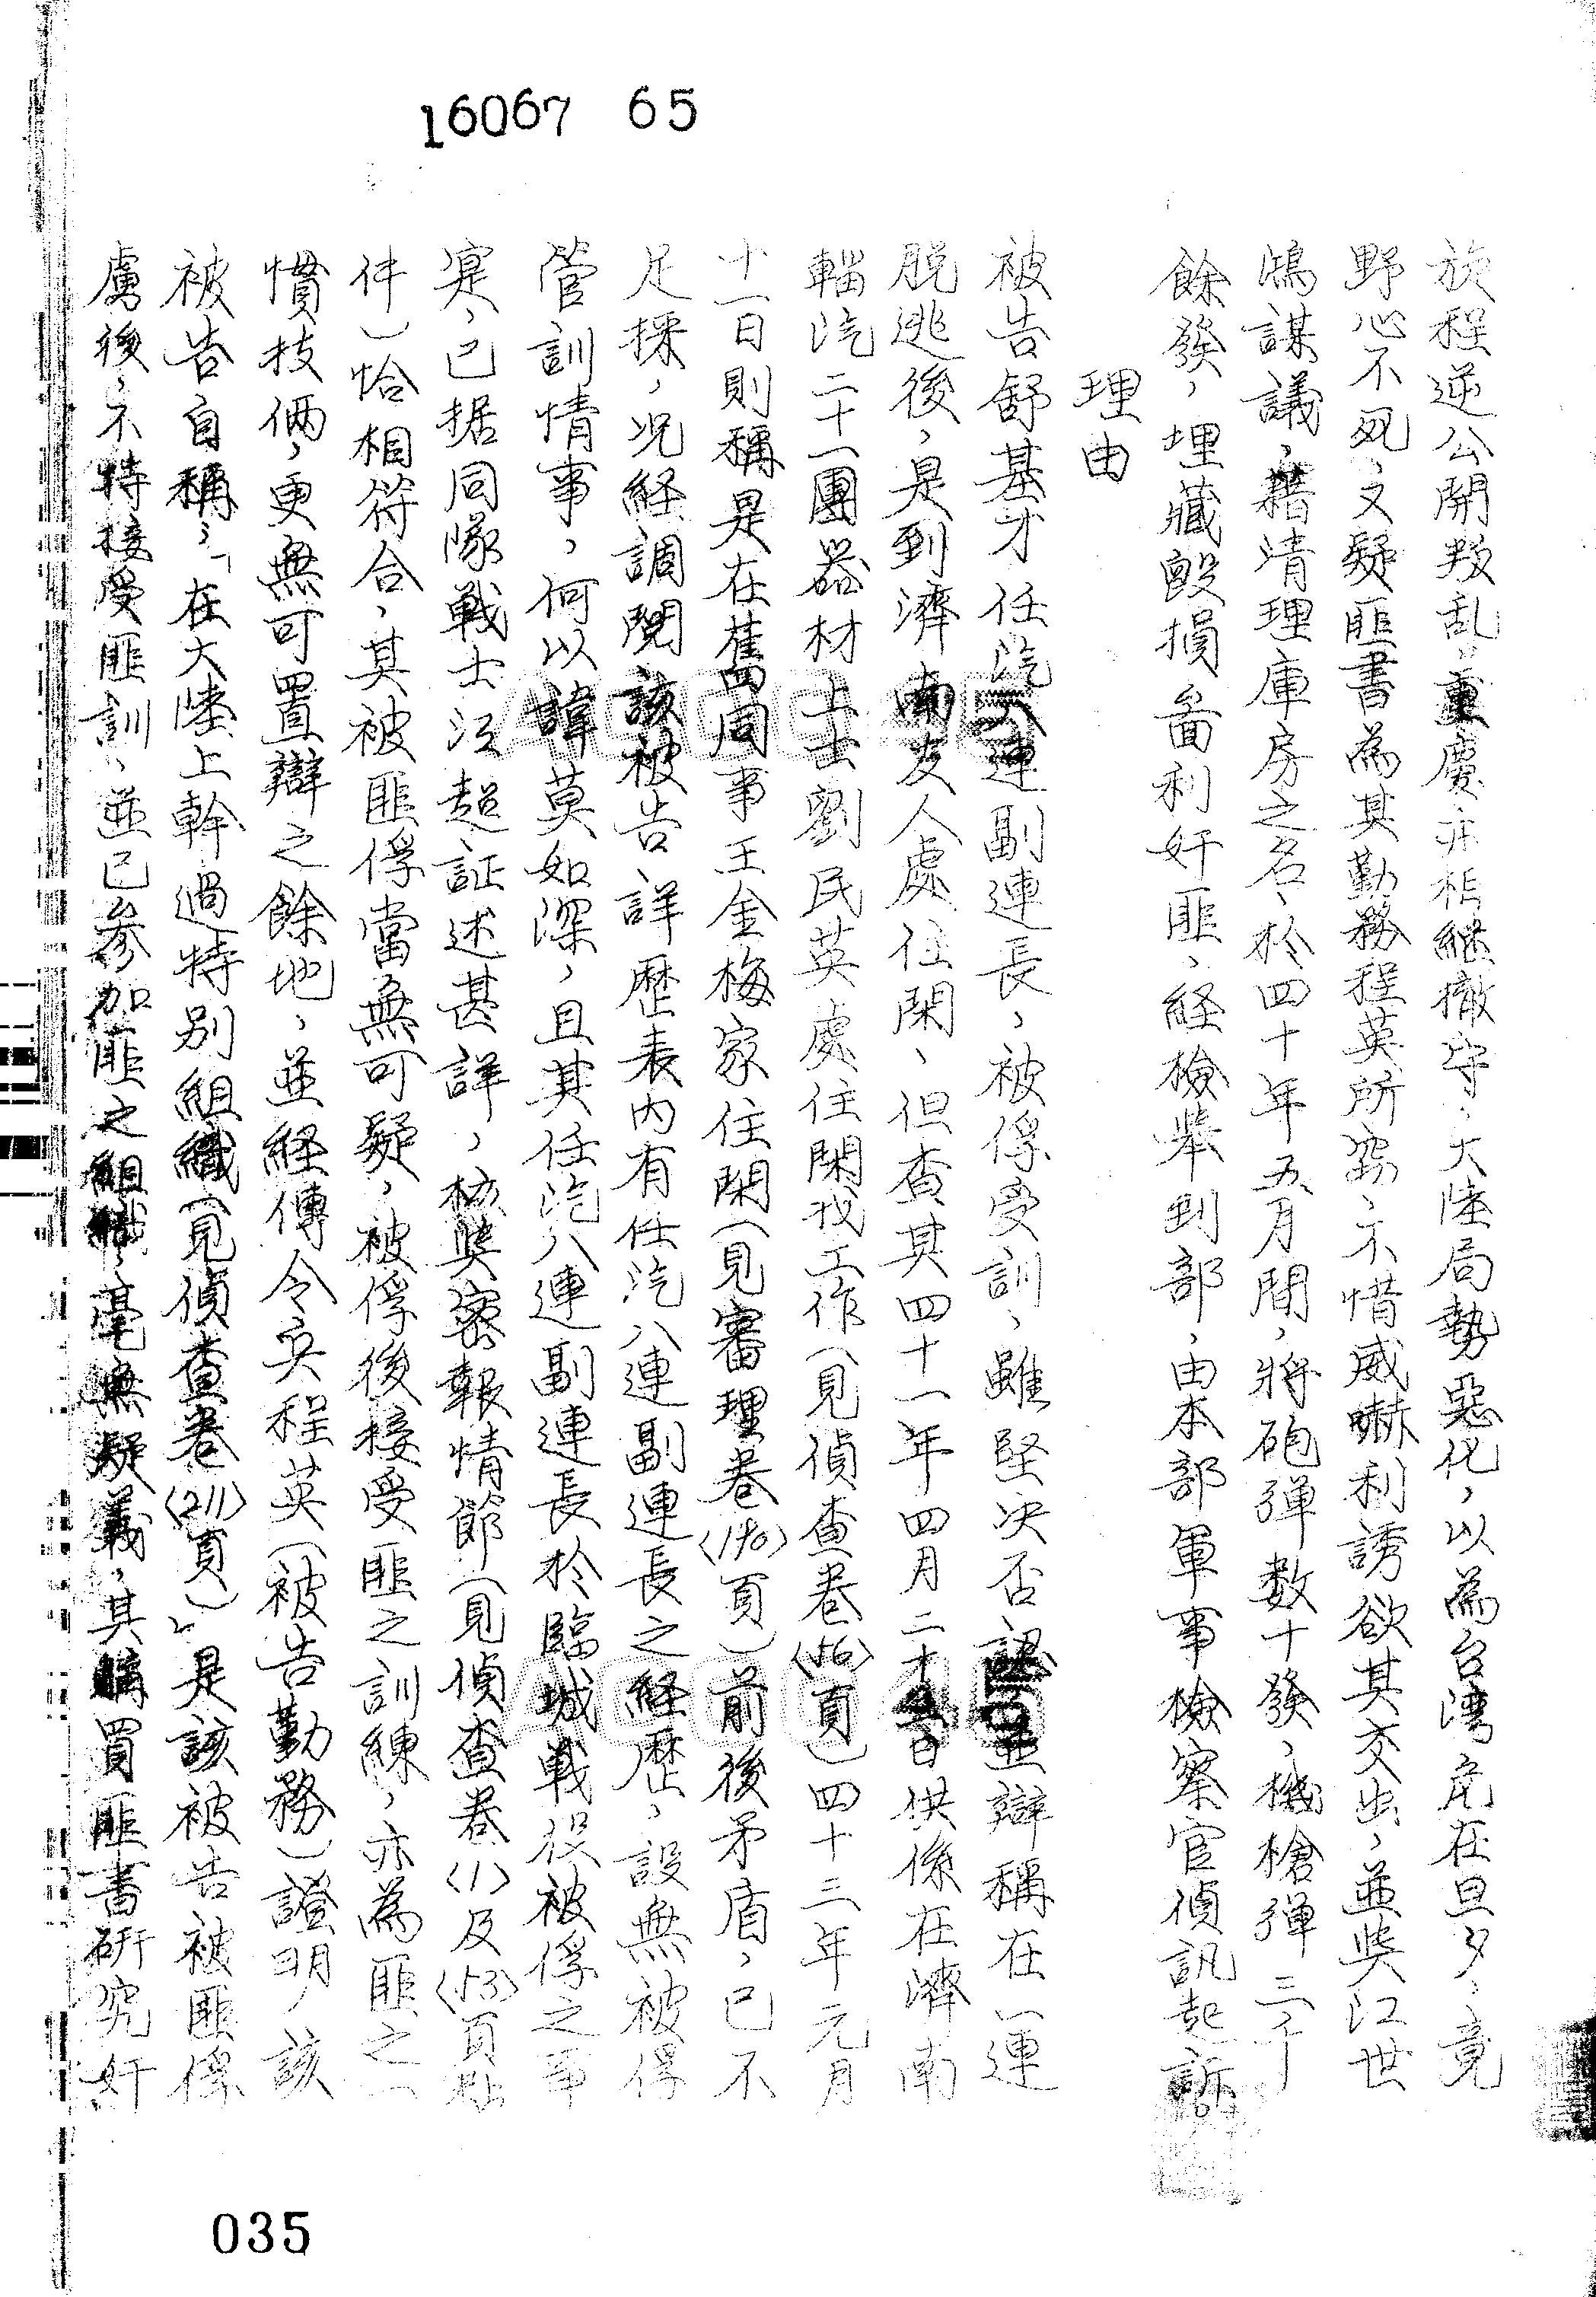 16067 65
旋程逆公開叛乱重慶亦相継撤守、大陸局勢惡化，以為台湾危在旦夕、竟
野心不死、又疑匪書為其勤務程英所窃、不惜威嚇利誘欲其交出，並與江世
鴻謀議，藉清理庫房之名、於四十年五月間，將砲弹数十發，機槍弹三千
餘發，埋藏毀損啚利奸匪、経檢举到部，由本部軍事檢察官偵訊起訴
理由
被告舒基才任汽八連副連長，被俘受訓、雖堅决否認並辯稱在一連
脱逃後，是到濟南友人處住閑、但查其四十一年四月二十六日供係在濟南
輜汽二十一團器材上士劉民英處住閑找工作（見偵查卷〈56〉頁）四十三年元月
十一日則稱是在舊同事王金梅家住閑（見審理卷〈190〉頁）前後矛盾，已不
足採，况経調閱該被告詳歷表内有任汽八連副連長之経歷，設無被俘
管訓情事，何以諱莫如深，且其任汽八連副連長於臨城戦役被俘之事
寔，已据同隊戦士江超証述甚詳，核與密報情節（見偵查卷〈1〉及〈53〉頁
件）恰相符合，其被匪俘當無可疑，被俘後接受匪之訓練，亦為匪之一
慣技倆，更無可置辯之餘地，並経傳令兵程英（被告勤務）證明，該
被告自稱，「在大陸上幹過特别組織（見偵查卷〈211〉頁）」是該被告被匪俘
虜後，不特接受匪訓，並已參加匪之組織，毫無疑義，其購買匪書研究奸
035